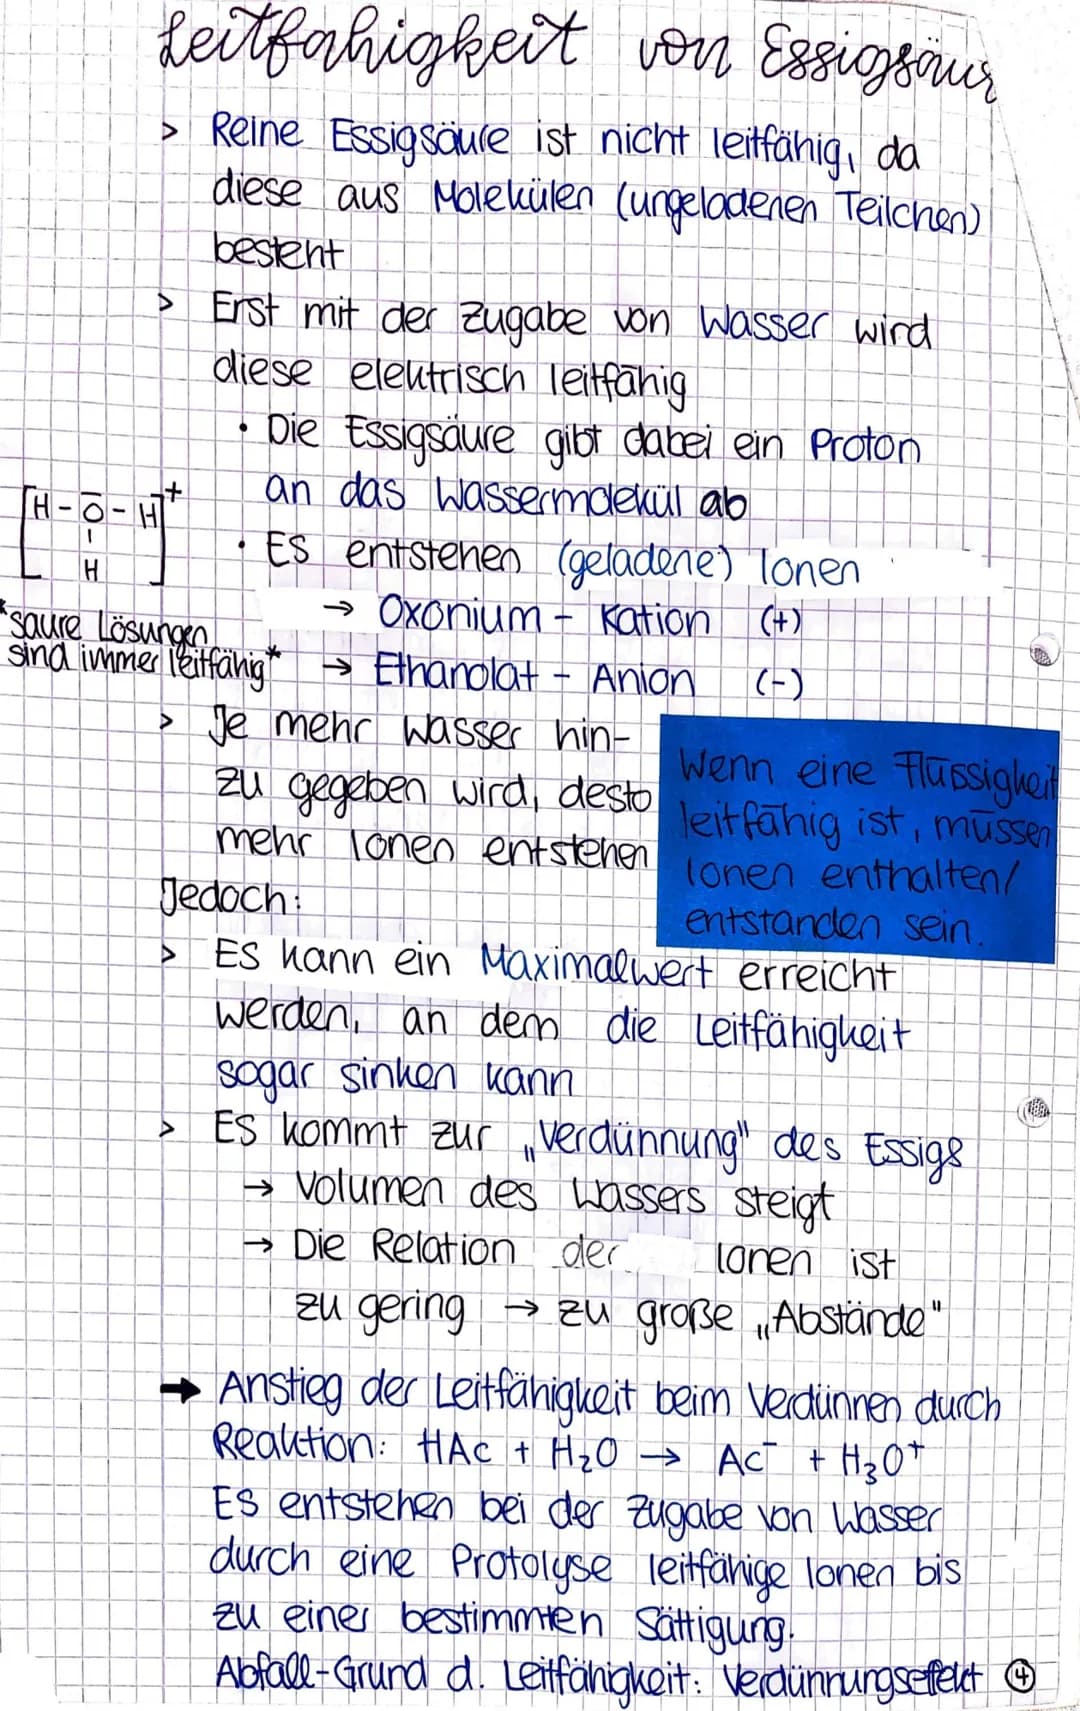 Leitfähigkeit von Essigsäure
> Reine Essigsäure ist nicht leitfähig, da
diese aus Molekülen (ungeladenen Teilchen)
besteht
> Erst mit der Zugabe von Wasser wird
diese elektrisch leitfähig
• Die Essigsäure gibt dabei ein Proton
an das Wassermolekül ab
[H-O-H]+
H
• ES entstehen (geladene) Ionen
→ Oxonium - Kation (+)
*saure Lösungen
sind immer leitfähig*
→ Ethanolat - Anion (-)
> Je mehr Wasser hin-
zu gegeben wird, desto
mehr Ionen entstehen
Wenn eine Flüssigkeit
leitfähig ist, müssen
Ionen enthalten/
entstanden sein.
Jedoch:
> ES kann ein Maximalwert erreicht
werden, an dem die Leitfähigkeit
sogar sinken kann
> ES kommt zur „Verdünnung" des Essigs
→ Volumen des Wassers steigt
→ Die Relation der Ionen ist
zu gering → zu große „Abstände"
→ Anstieg der Leitfähigkeit beim Verdünnen durch
Reaktion: HAc + H₂O → Ac⁻ + H₃O⁺
ES entstehen bei der Zugabe von Wasser
durch eine Protolyse leitfähige Ionen bis
zu einer bestimmten Sättigung.
Abfall-Grund d. Leitfähigkeit: Verdünnungseffekt ④